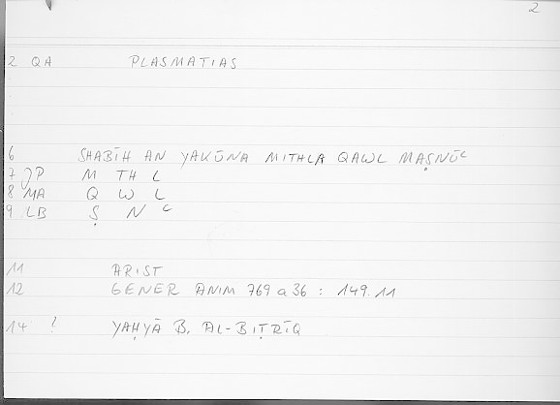 2
2 QA PLASMATIAS
6 SHABĪH AN YAKŪNA MITHLA QAWL MAṢNŪᶜ
7 JP M TH L
8 MA Q W L
9 LB Ṣ N ᶜ
11 ARIST
12 GENER ANIM 769 a 36 : 149.11
14 ! YAḤYĀ B. AL-BIṬRĪQ